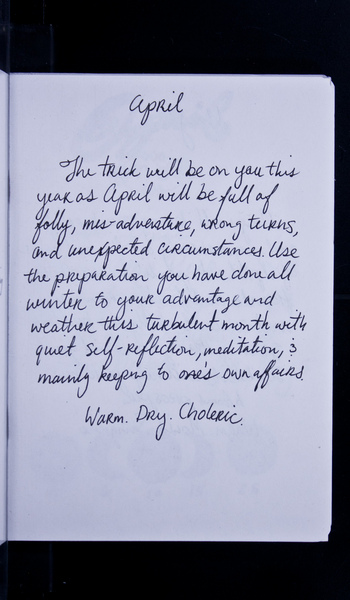 April
The trick will be on you this
year as April will be full of
folly, mis-adventure, wrong turns,
and unexpected circumstances. Use
the preparation you have done all
winter to your advantage and
weather this turbulent month with
quiet self-reflection, meditation, &
mainly keeping to one's own affairs.
Warm. Dry. Choleric.